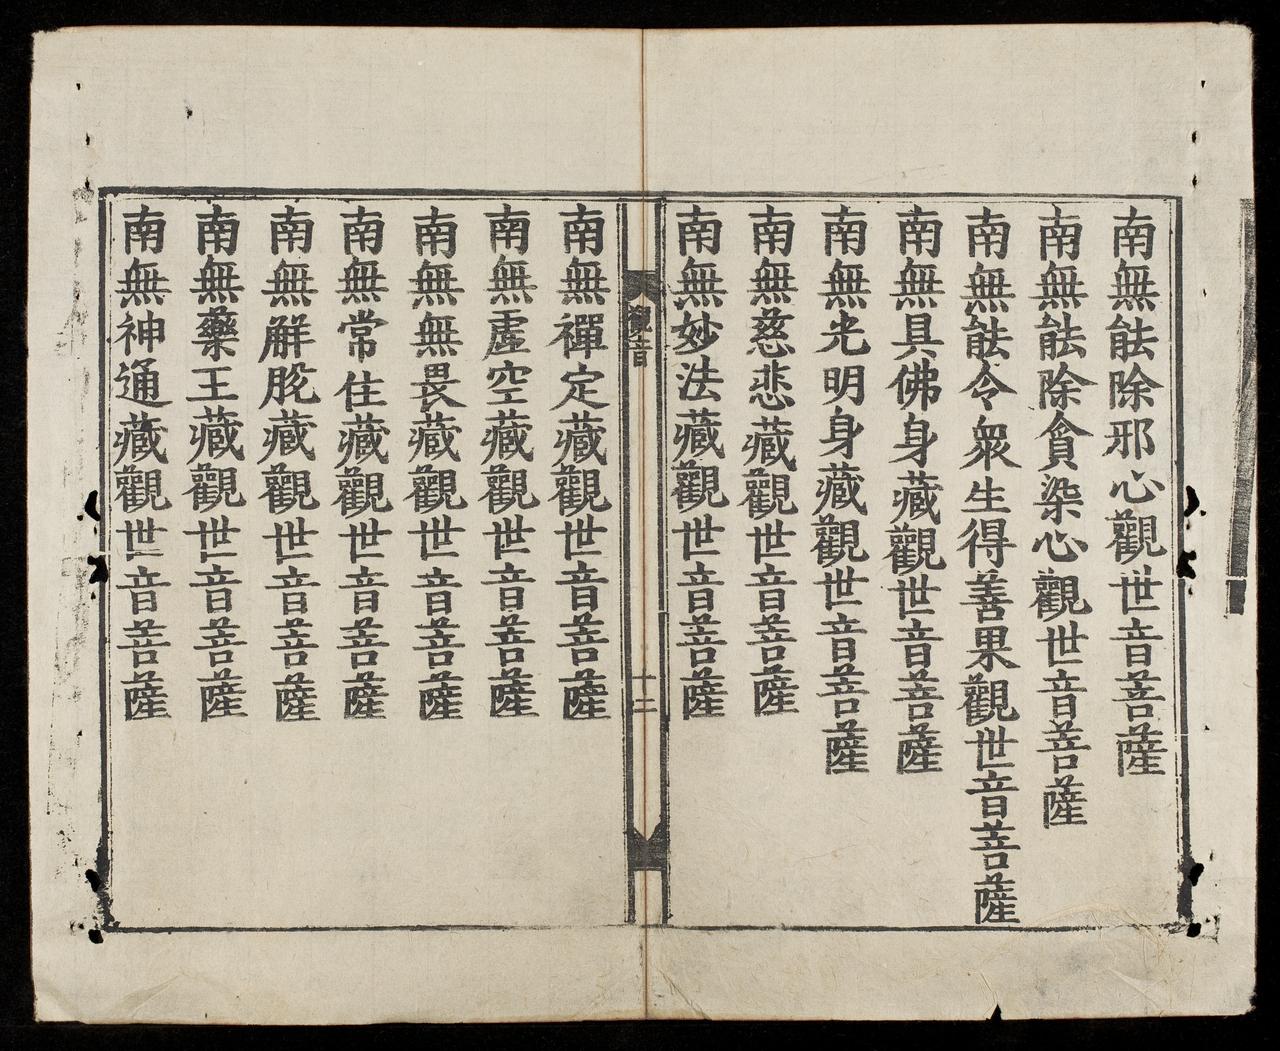 南無能除邪心觀世音菩薩
南無能除貪染心觀世音菩薩
南無能令衆生得善果觀世音菩薩
南無具佛身藏觀世音菩薩
南無光明身藏觀世音菩薩
南無慈悲藏觀世音菩薩
南無妙法藏觀世音菩薩
觀音
十二
南無禪定藏觀世音菩薩
南無虛空藏觀世音菩薩
南無無畏藏觀世音菩薩
南無常住藏觀世音菩薩
南無解脫藏觀世音菩薩
南無藥王藏觀世音菩薩
南無神通藏觀世音菩薩